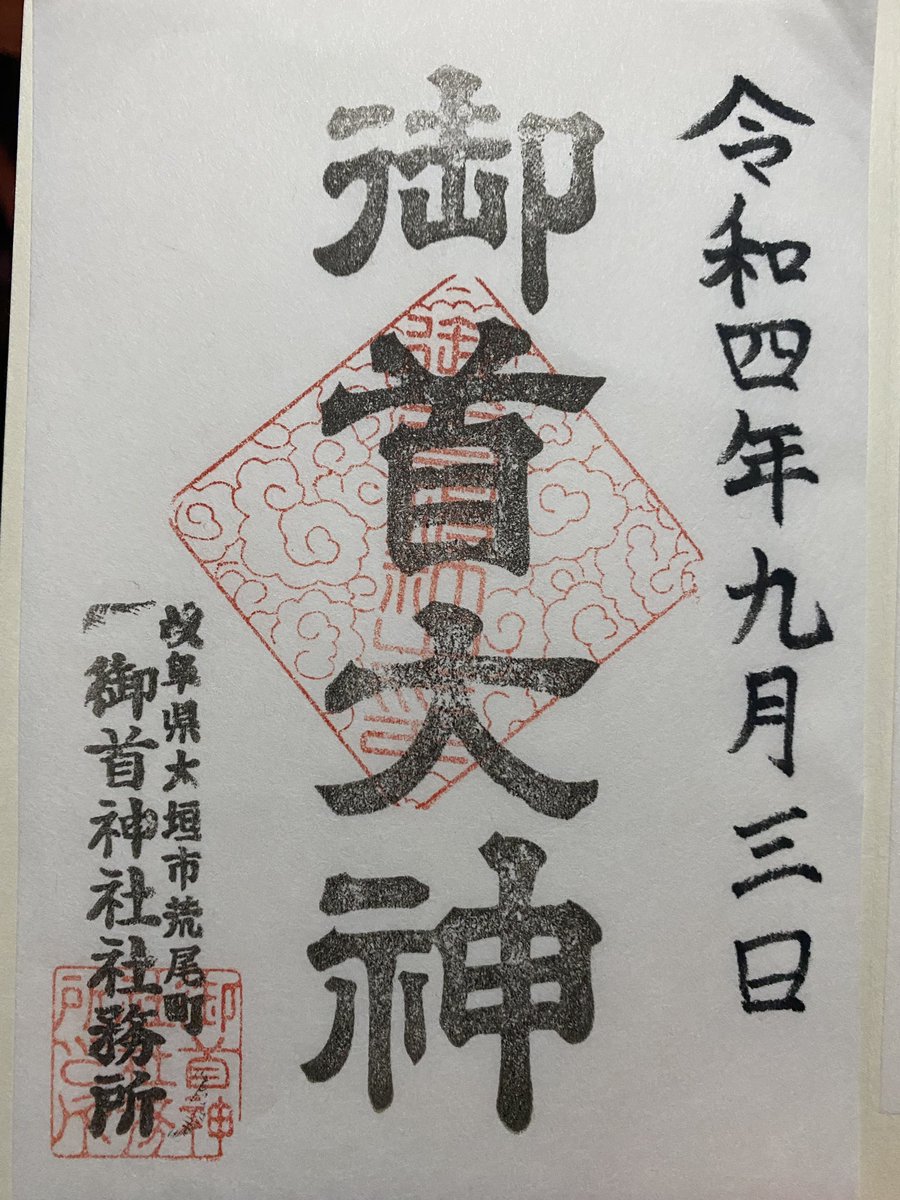 令和四年九月三日
御首大神
岐阜県大垣市荒尾町
御首神社社務所